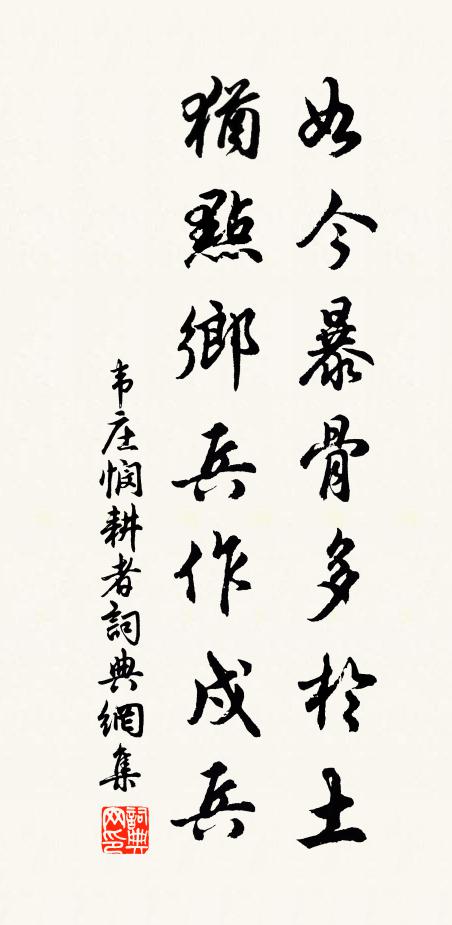 如今暴骨多於土
猶點鄉兵作戍兵
韦庄悯耕者詞典網集
詞典网印